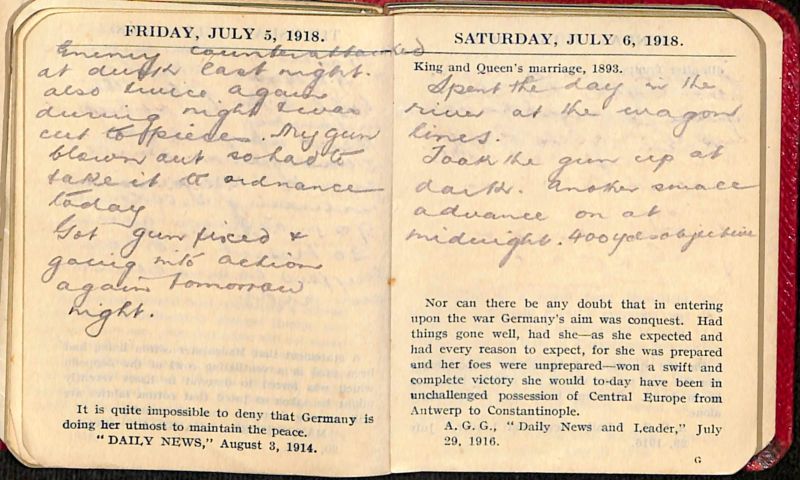 FRIDAY, JULY 5, 1918.
Enemy counterattacked
at dusk last night.
also twice again
during night & was
cut to pieces. My gun
blown out so had to
take it to ordnance
today
Got gun fixed &
going into action
again tomorrow
night.
It is quite impossible to deny that Germany is
doing her utmost to maintain the peace.
"DAILY NEWS," August 3, 1914.
SATURDAY, JULY 6, 1918.
King and Queen's marriage, 1893.
Spent the day in the
river at the wagon
lines.
Took the gun up at
dark. Another small
advance on at
midnight. 400yds objective
Nor can there be any doubt that in entering
upon the war Germany's aim was conquest. Had
things gone well, had she—as she expected and
had every reason to expect, for she was prepared
and her foes were unprepared—won a swift and
complete victory she would to-day have been in
unchallenged possession of Central Europe from
Antwerp to Constantinople.
A. G. G., "Daily News and Leader," July
29, 1916.
G